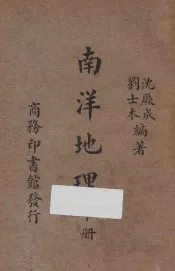 沈厥成
劉士木 編著
南洋地理
冊
商務印書館發行